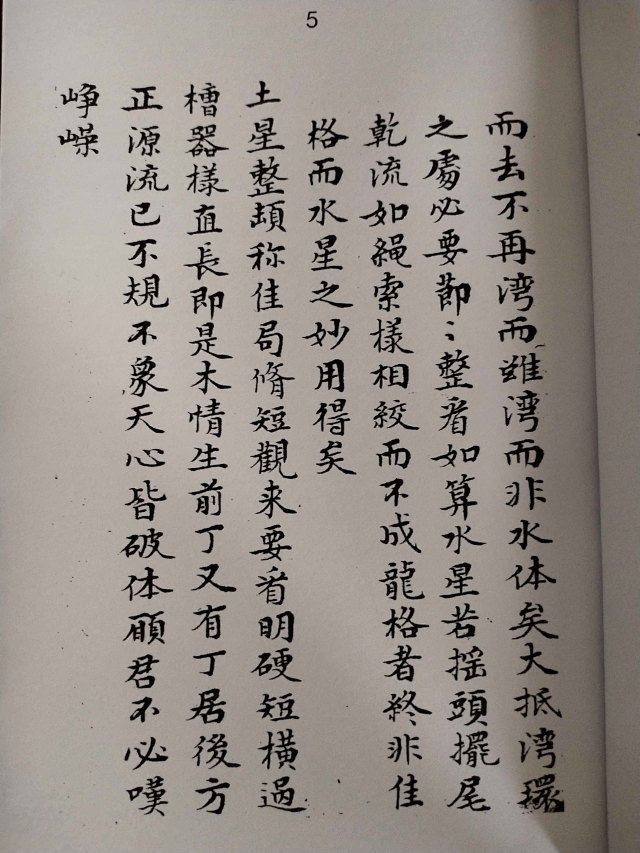 5
而去不再湾而雖湾而非水体矣大抵湾環
之處必要節〻整看如算水星若摇頭擺尾
乾流如繩索樣相絞而不成龍格者終非佳
格而水星之妙用得矣
土星整頡称佳局脩短觀来要看明硬短橫過
槽器樣直長即是木情生前丁又有丁居後方
正源流已不規不象天心皆破体願君不必嘆
崢嶸